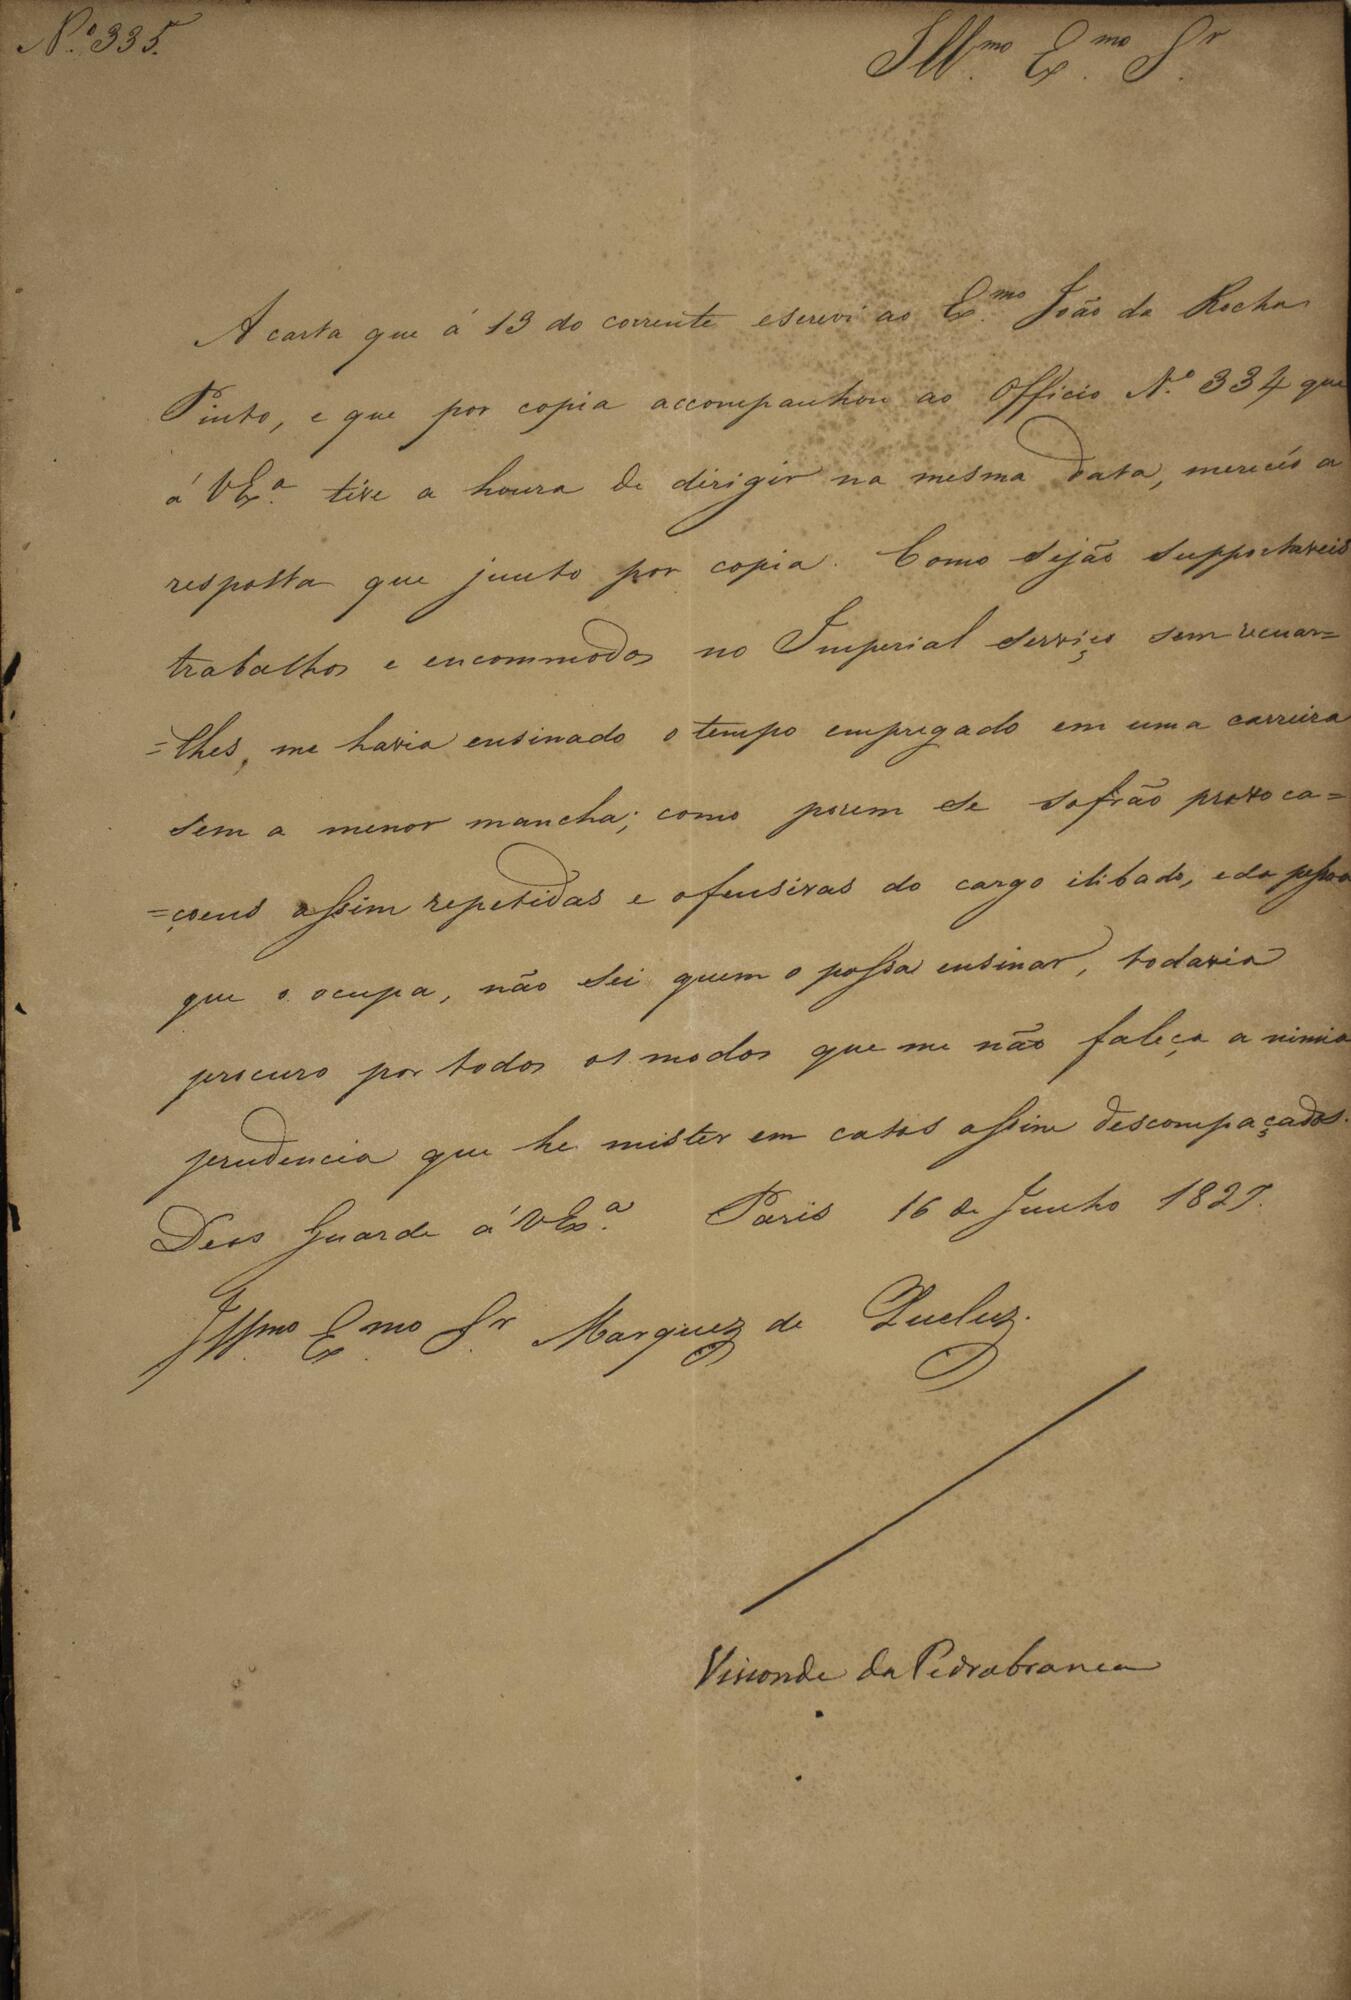 N.º 335.
Ill.mo Ex.mo Sr.
A carta que á 13 do corrente escrevi ao Ex.mo João da Rocha
Pinto, e que por copia accompanhou ao Officio N.º 334 que
á VEx.a tive a honra de dirigir na mesma data, mereceo a
resposta que junto por copia. Como sejão supportaveis
trabalhos e encommodos no Imperial serviço sem recuar=
=lhes, me havia ensinado o tempo empregado em uma carreira
sem a menor mancha; como porem se sofrão provoca=
=çoens assim repetidas e ofensivas do cargo ilibado, e da pessoa
que o ocupa, não sei quem o possa ensinar, todavia
procuro por todos os modos que me não faleça a nimia
prudencia que he mister em casos assim descompaçados.
Deos Guarde á VEx.a Paris 16 de Junho 1827.
Ill.mo Ex.mo Sr. Marquez de Queluz.
Visconde da Pedrabranca